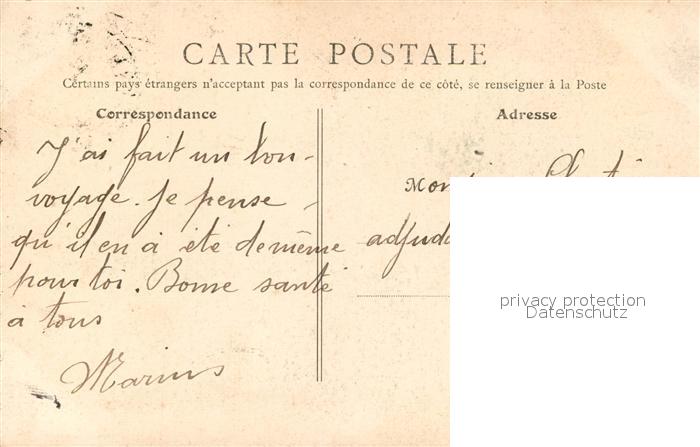 CARTE POSTALE
Certains pays étrangers n'acceptant pas la correspondance de ce côté, se renseigner à la Poste
Correspondance
Adresse
J'ai fait un bon
voyage. Je pense
qu'il en a été de même
pour toi. Bonne santé
à tous
Marius
privacy protection
Datenschutz